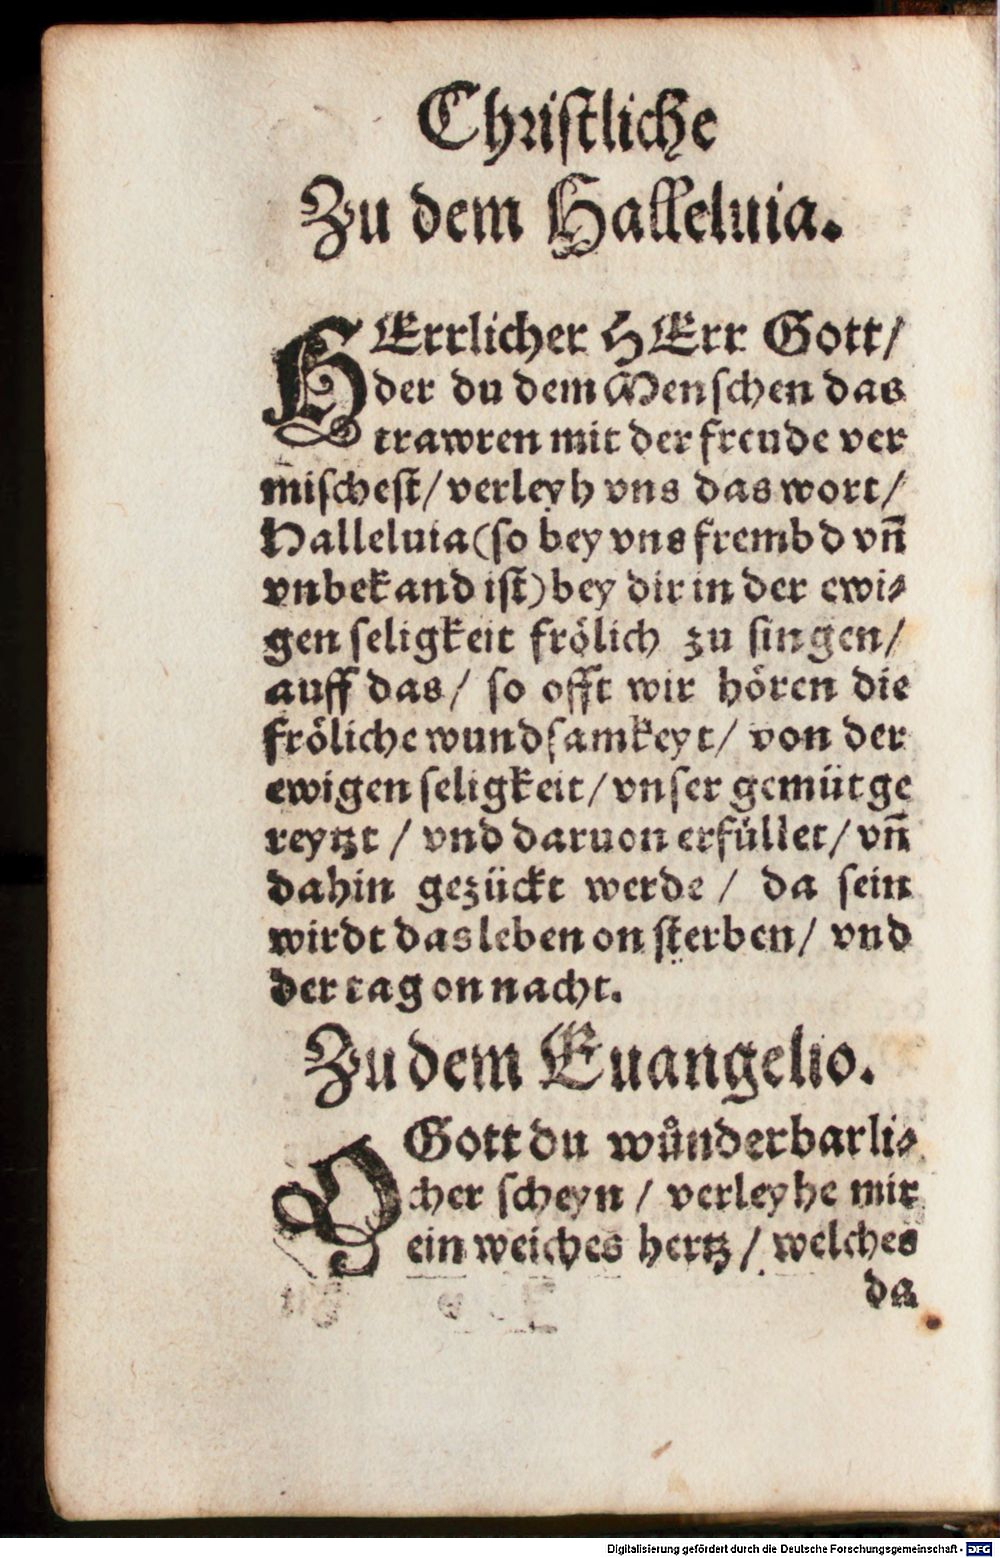 Christliche
Zu dem Halleluia.
HErrlicher HErr Gott/
der du dem Menschen das
trawren mit der freude ver
mischest/ verleyh vns das wort/
Halleluia (so bey vns frembd vn̄
vnbekand ist) bey dir in der ewi⸗
gen seligkeit frölich zu singen/
auff das/ so offt wir hören die
fröliche wundsamkeyt/ von der
ewigen seligkeit/ vnser gemüt ge
reytzt / vnd daruon erfüllet/ vn̄
dahin gezückt werde / da sein
wirdt das leben on sterben/ vnd
der tag on nacht.
Zu dem Euangelio.
O Gott du wůnderbarli⸗
cher scheyn / verleyhe mir
ein weiches hertz/ welches
da
Digitalisierung gefördert durch die Deutsche Forschungsgemeinschaft - DFG